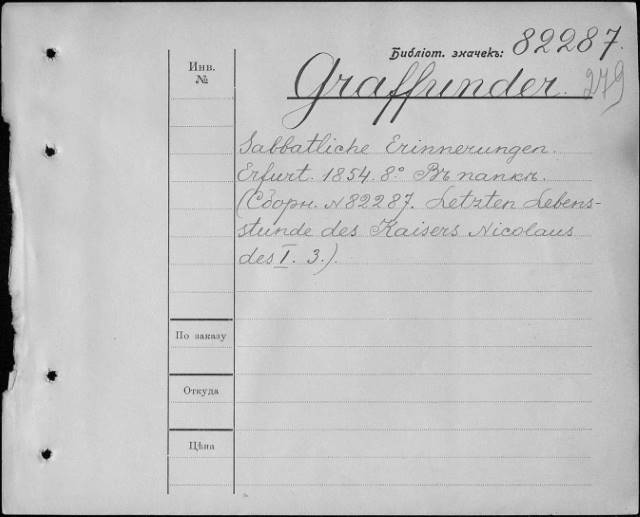 Библіот. значекъ: 82287.
Инв. №
Graffunder. 279
Sabbatliche Erinnerungen.
Erfurt. 1854. 8° Въ папкѣ.
(Сборн. N 82287. Letzten Lebens-
stunde des Kaisers Nicolaus
des I. 3.).
По заказу
Откуда
Цѣна